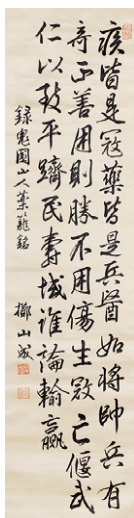 疾皆是寇藥皆是兵醫如將帥兵有
奇正善用則勝不用傷生寇亡偃武
仁以致平躋民壽域誰論輸贏
録鬼國山人藥籠銘 山